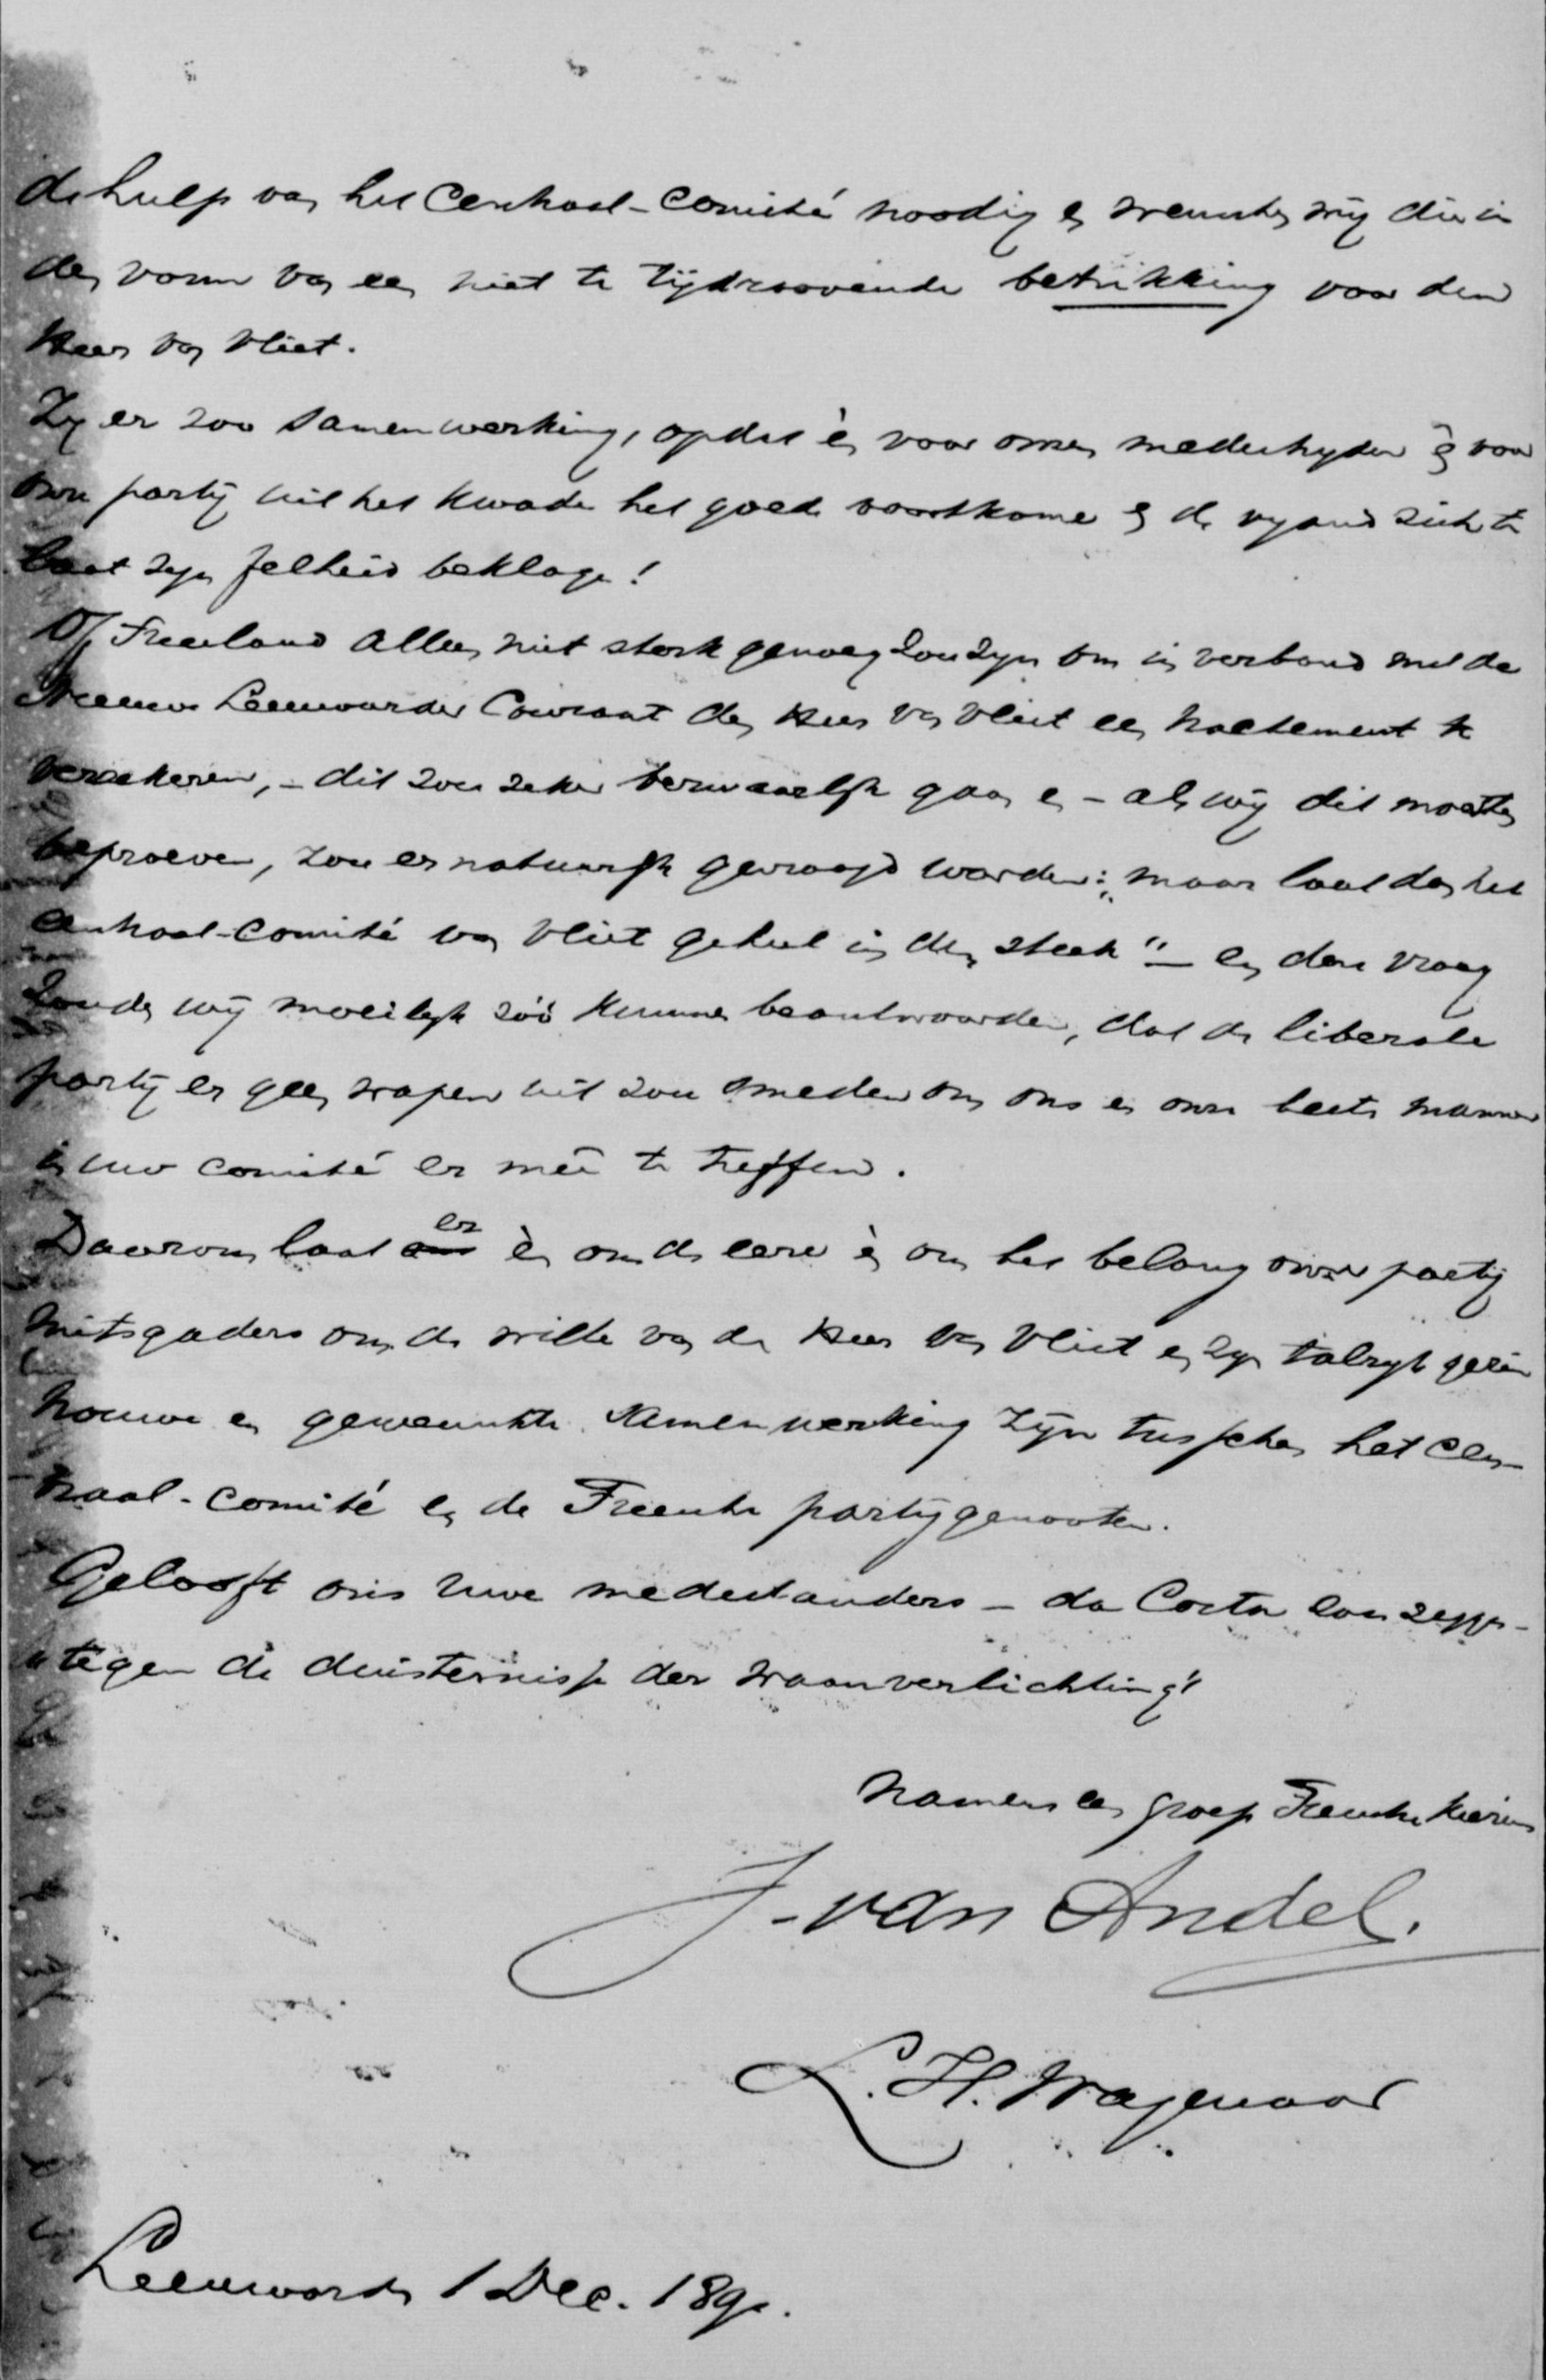 de hulp van het Centraal-Comité noodig en wenschen wij die in
den vorm van een niet te tijdroovende betrekking voor den
Heer van Vliet.
Zij er zoo samenwerking, opdat èn voor onzen medestrijder èn voor
onze partij uit het kwade het goede voortkome en de vijand zich te
laat zijn felheid beklage!
Of Friesland alleen niet sterk genoeg zou zijn om in verband met de
Nieuwe Leeuwarder Courant den Heer van Vliet een tractement te
verzekeren, – dit zou zeker bezwaarlijk gaan en – als wij dit moesten
beproeven, zou er natuurlijk gevraagd worden: „maar laat dan het
centraal-comité van Vliet geheel in den steek" – en deze vraag
zouden wij moeilijk zóó kunnen beantwoorden, dat de liberale
partij er geen wapen uit zou smeden om ons en onze beste mannen
in uw comité er meê te treffen.
Daarom laat er èn om de eere èn om het belang onzer partij
mitsgaders om de wille van den Heer van Vliet en zijn talrijk gezin
trouwe en gewenschte samenwerking zijn tusschen het cen-
traal-comité en de Friesche partijgenooten.
Gelooft ons uwe medestanders – da Costa zou zeggen –
„tegen de duisternisse der waanverlichting"
Namens een groep Friesche kiezers
J. van Andel.
L. H. Wagenaar
Leeuwarden 1 Dec. 189